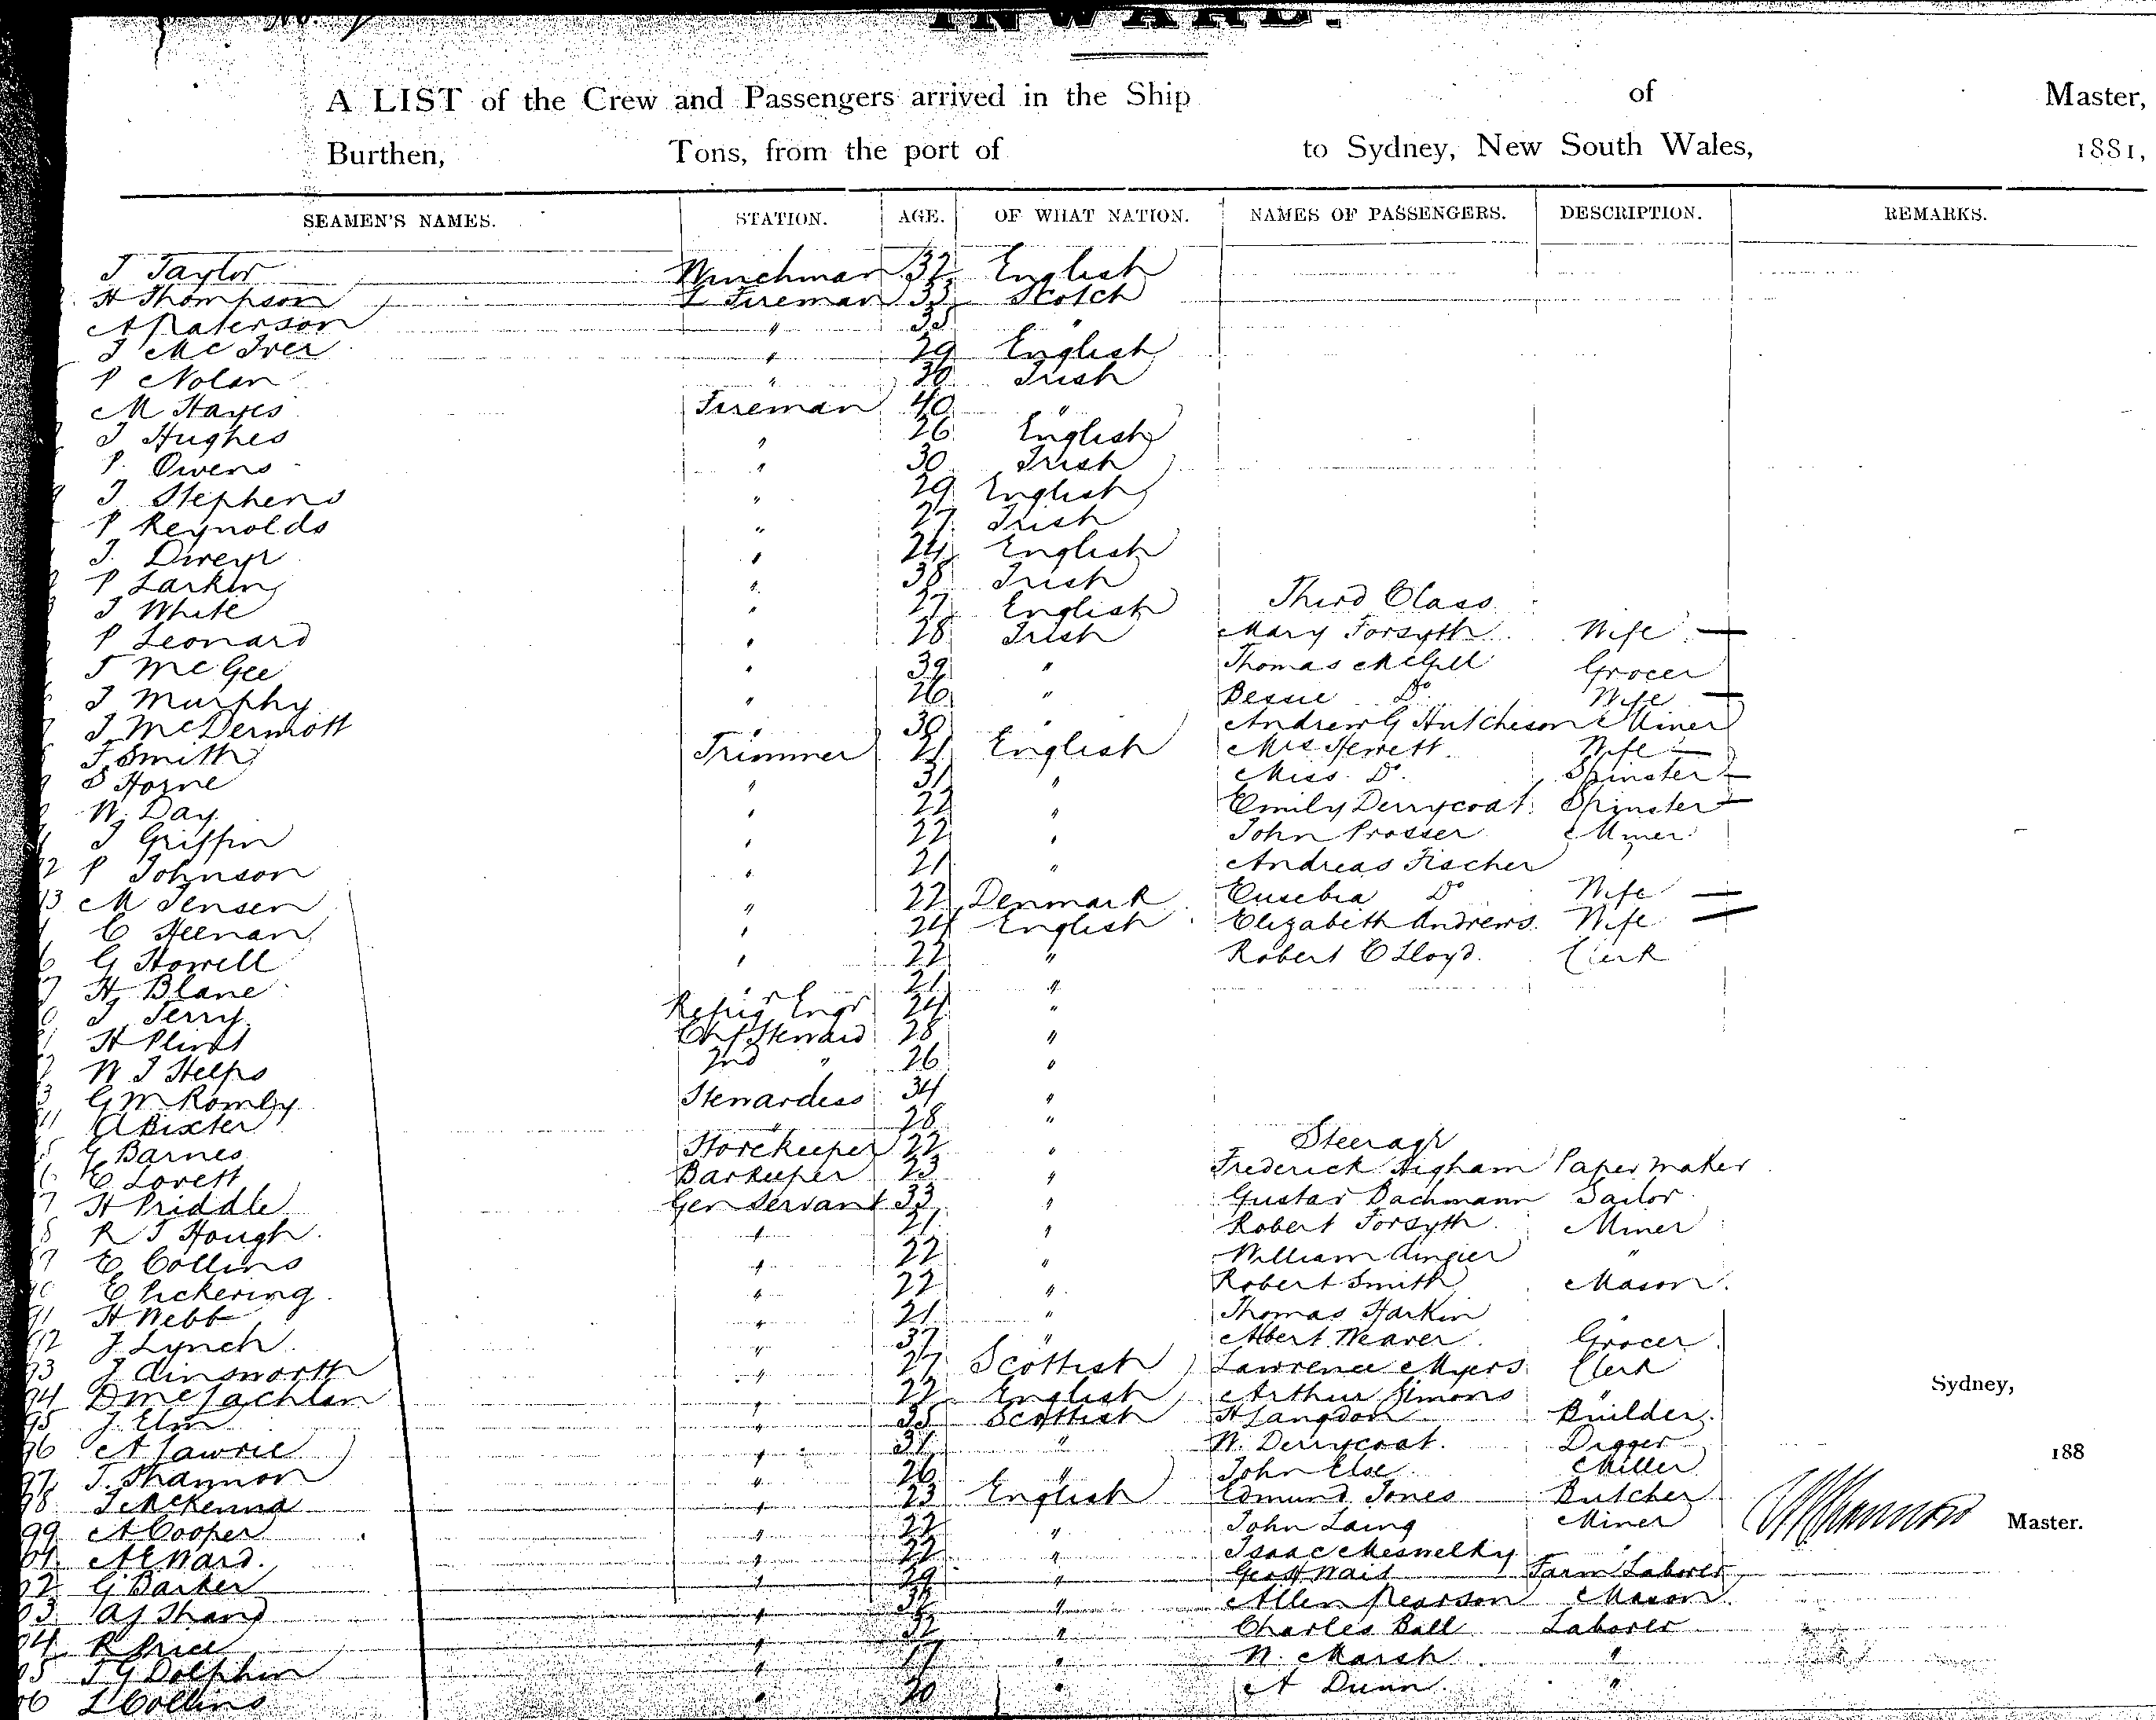 INWARD.
A LIST of the Crew and Passengers arrived in the Ship of Master,
Burthen, Tons, from the port of to Sydney, New South Wales, 1881,
SEAMEN'S NAMES. STATION. AGE. OF WHAT NATION. NAMES OF PASSENGERS. DESCRIPTION. REMARKS.
J Taylor Winchman 32 English
H Thompson L Fireman 33 Scotch
A Paterson " 35 "
J McIver " 29 English
P Nolan " 30 Irish
M Hayes Fireman 40 "
J Hughes " 26 English
P. Owens " 30 Irish
J Stephens " 29 English
P Reynolds " 27 Irish
J. Dweyr " 24 English
P Larkin " 38 Irish
J White " 27 English Third Class
P Leonard " 28 Irish Mary Forsyth Wife —
J McGee " 39 " Thomas McGill Grocer
J Murphy " 26 " Bessie Do Wife —
J McDermott " 30 " Andrew G Hutcheson Miner
F. Smith Trimmer 21 English Mrs Hewett Wife —
S Horne " 31 " Miss Do. Spinster —
W. Day " 22 " Emily Derrycoat. Spinster —
J Griffin " 22 " John Prosser Miner
72 P Johnson " 21 " Andreas Fischer "
73 M Jensen " 22 Denmark Eusebia Do Wife —
C Heenan " 24 English Elizabeth Andrews. Wife —
G Howell " 22 " Robert C Lloyd. Clerk
H Blane " 21 "
J Terry Refrigr Engr 24 "
H Plint Chf Steward 28 "
W J Helps 2nd " 26 "
G M Romby Stewardess 34 "
A Bixter " 28 "
G Barnes Storekeeper 22 " Steerage
E Lovett Barkeeper 23 " Frederick Higham Paper maker
H Priddle Gen Servant 33 " Gustav Bachmann Sailor
R J Hough. " 21 " Robert Forsyth Miner
E Collins " 22 " William Angier "
E Pickering. " 22 " Robert Smith Mason.
91 H Webb " 21 " Thomas Harkin "
92 J Lynch. " 37 " Albert Weaver Grocer
93 J Ainsworth " 27 Scottish Lawrence Myers Clerk
94 D McLachlan " 22 English Arthur Simons "
95 J. Elm " 35 Scottish H Langdon Builder.
96 A Lawrie " 31 " W. Derrycoat. Digger
97 J. Shannon " 26 " John Else Miller
98 J McKenna " 23 English Edmund Jones Butcher
99 A Cooper " 22 " John Laing Miner
01 A E Ward. " 22 " Isaac "
02 G Barker " 29 " Geo H Farm Laborer
03 A J Shand " 32 " Allen Pearson Mason.
04 R Price " 32 " Charles Ball Laborer
05 J G Dolphin " 17 " W. Marsh "
06 L Collins " 20 " A Dunn. "
Sydney,
188
Master.